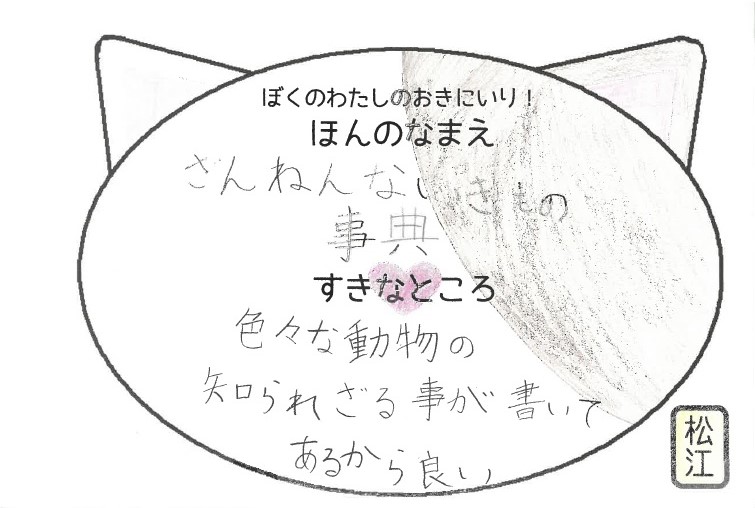 ぼくのわたしのおきにいり!
ほんのなまえ
ざんねんないきもの
事典
すきなところ
色々な動物の
知られざる事が書いて
あるから良い
松江